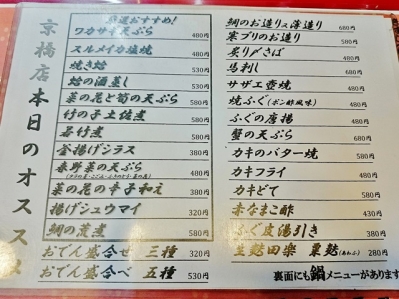 京橋店本日のオススメ
厳選おすすめ!
ワカサギ天ぷら 480円
スルメイカ塩焼 480円
焼き蛤 530円
蛤の酒蒸し 530円
菜の花と筍の天ぷら 580円
竹の子土佐煮 480円
若竹煮 480円
釜揚げシラス 380円
春野菜の天ぷら 480円
菜の花の辛子和え 380円
揚げシュウマイ 320円
鯛の荒煮 580円
おでん盛合せ 三種 320円
おでん盛合べ 五種 530円
鯛のお造り又薄造り 680円
寒ブリのお造り 580円
炙り〆さば 480円
馬刺し 680円
サザエ壺焼 480円
焼ふぐ(ポン酢風味) 480円
ふぐの唐揚 480円
蟹の天ぷら 680円
カキのバター焼 580円
カキフライ 480円
カキどて 580円
赤なまこ酢 430円
ふぐ皮湯引き 380円
生麩田楽 粟麩(あわふ) 280円
裏面にも鍋メニューがあります